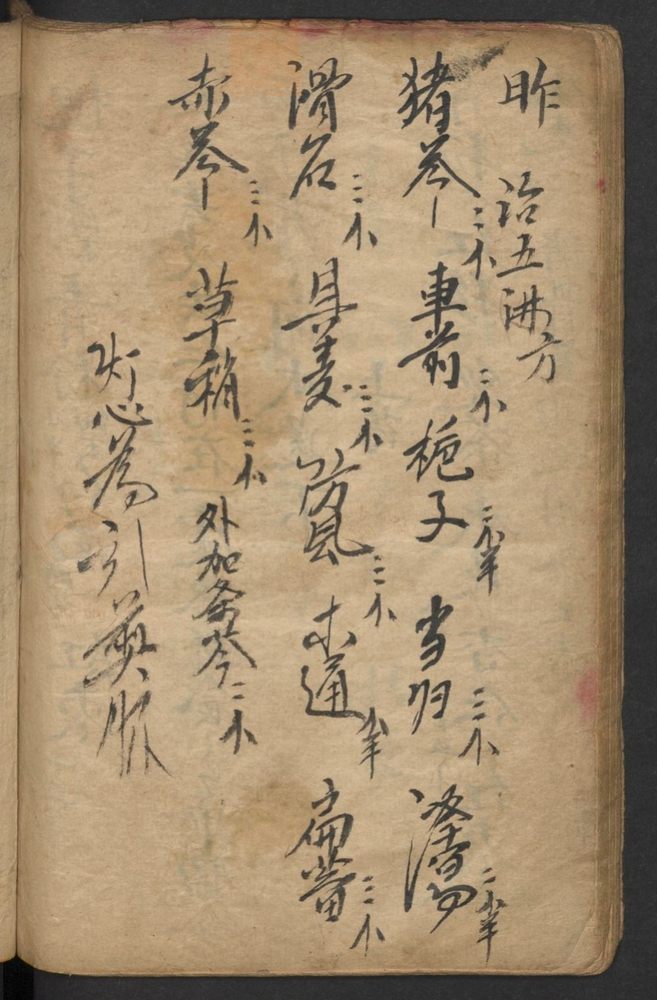 昨 治五淋方
猪苓二小 車前二小 梔子二小半 当归三小 澤瀉二小半
滑石三小 具麦三小 防風三小 木通小半 扁蓄三小
赤苓三小 草稍三小 外加条芩二小
灯心為引煎服